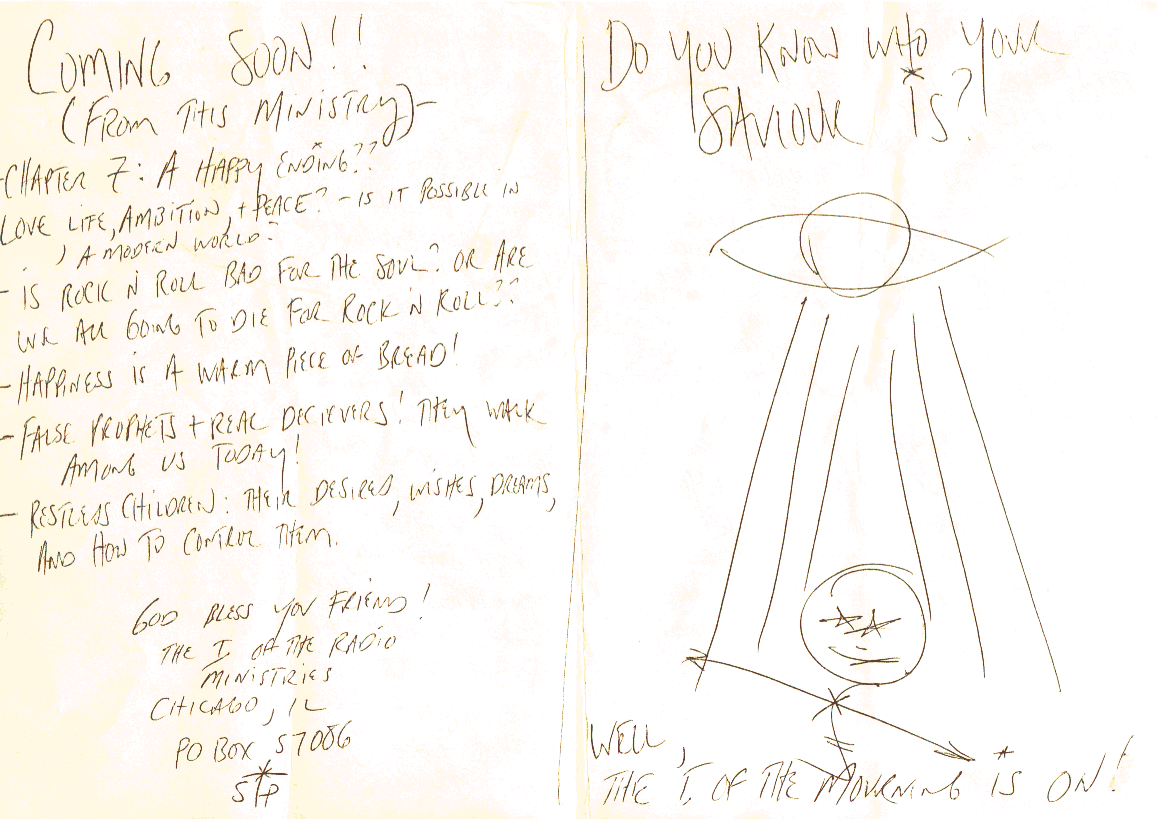 COMING SOON!!
(FROM THIS MINISTRY)-
-CHAPTER 7: A HAPPY ENDING??
LOVE LIFE, AMBITION, + PEACE? - IS IT POSSIBLE IN
A MODERN WORLD?
- IS ROCK N ROLL BAD FOR THE SOUL? OR ARE
WE ALL GOING TO DIE FOR ROCK 'N ROLL??
- HAPPINESS IS A WARM PIECE OF BREAD!
- FALSE PROPHETS + REAL DECIEVERS! THEY WALK
AMONG US TODAY!
- RESTLESS CHILDREN: THEIR DESIRES, WISHES, DREAMS,
AND HOW TO CONTROL THEM.
GOD BLESS YOU FRIEND!
THE I OF THE RADIO
MINISTRIES
CHICAGO, IL
PO BOX 57086
DO YOU KNOW WHO YOUR
SAVIOUR IS?
WELL,
THE I OF THE MOURNING IS ON!